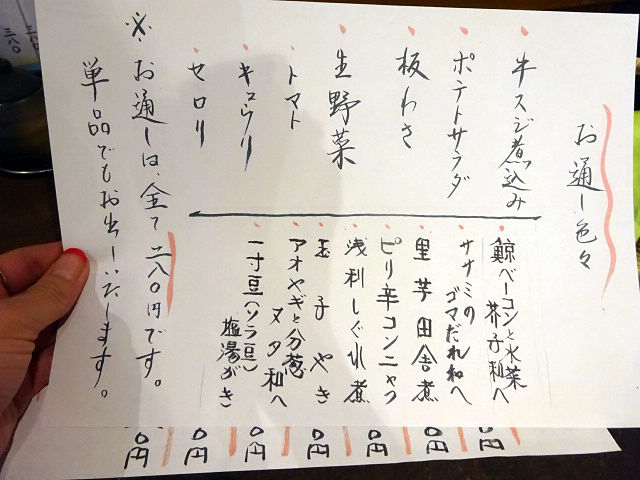 お通し色々
牛スジ煮込み
ポテトサラダ
板わさ
生野菜
トマト
キュウリ
セロリ
鯨ベーコンと水菜
芥子和へ
ササミの
ゴマだれ和へ
里芋田舎煮
ピリ辛コンニャク
浅利しぐれ煮
玉子やき
アオヤギと分葱
ヌタ和へ
一寸豆(ソラ豆)
塩湯がき
※お通しは、全て二八〇円です。
単品でもお出しいたします。
〇円
〇円
〇円
〇円
〇円
〇円
〇円